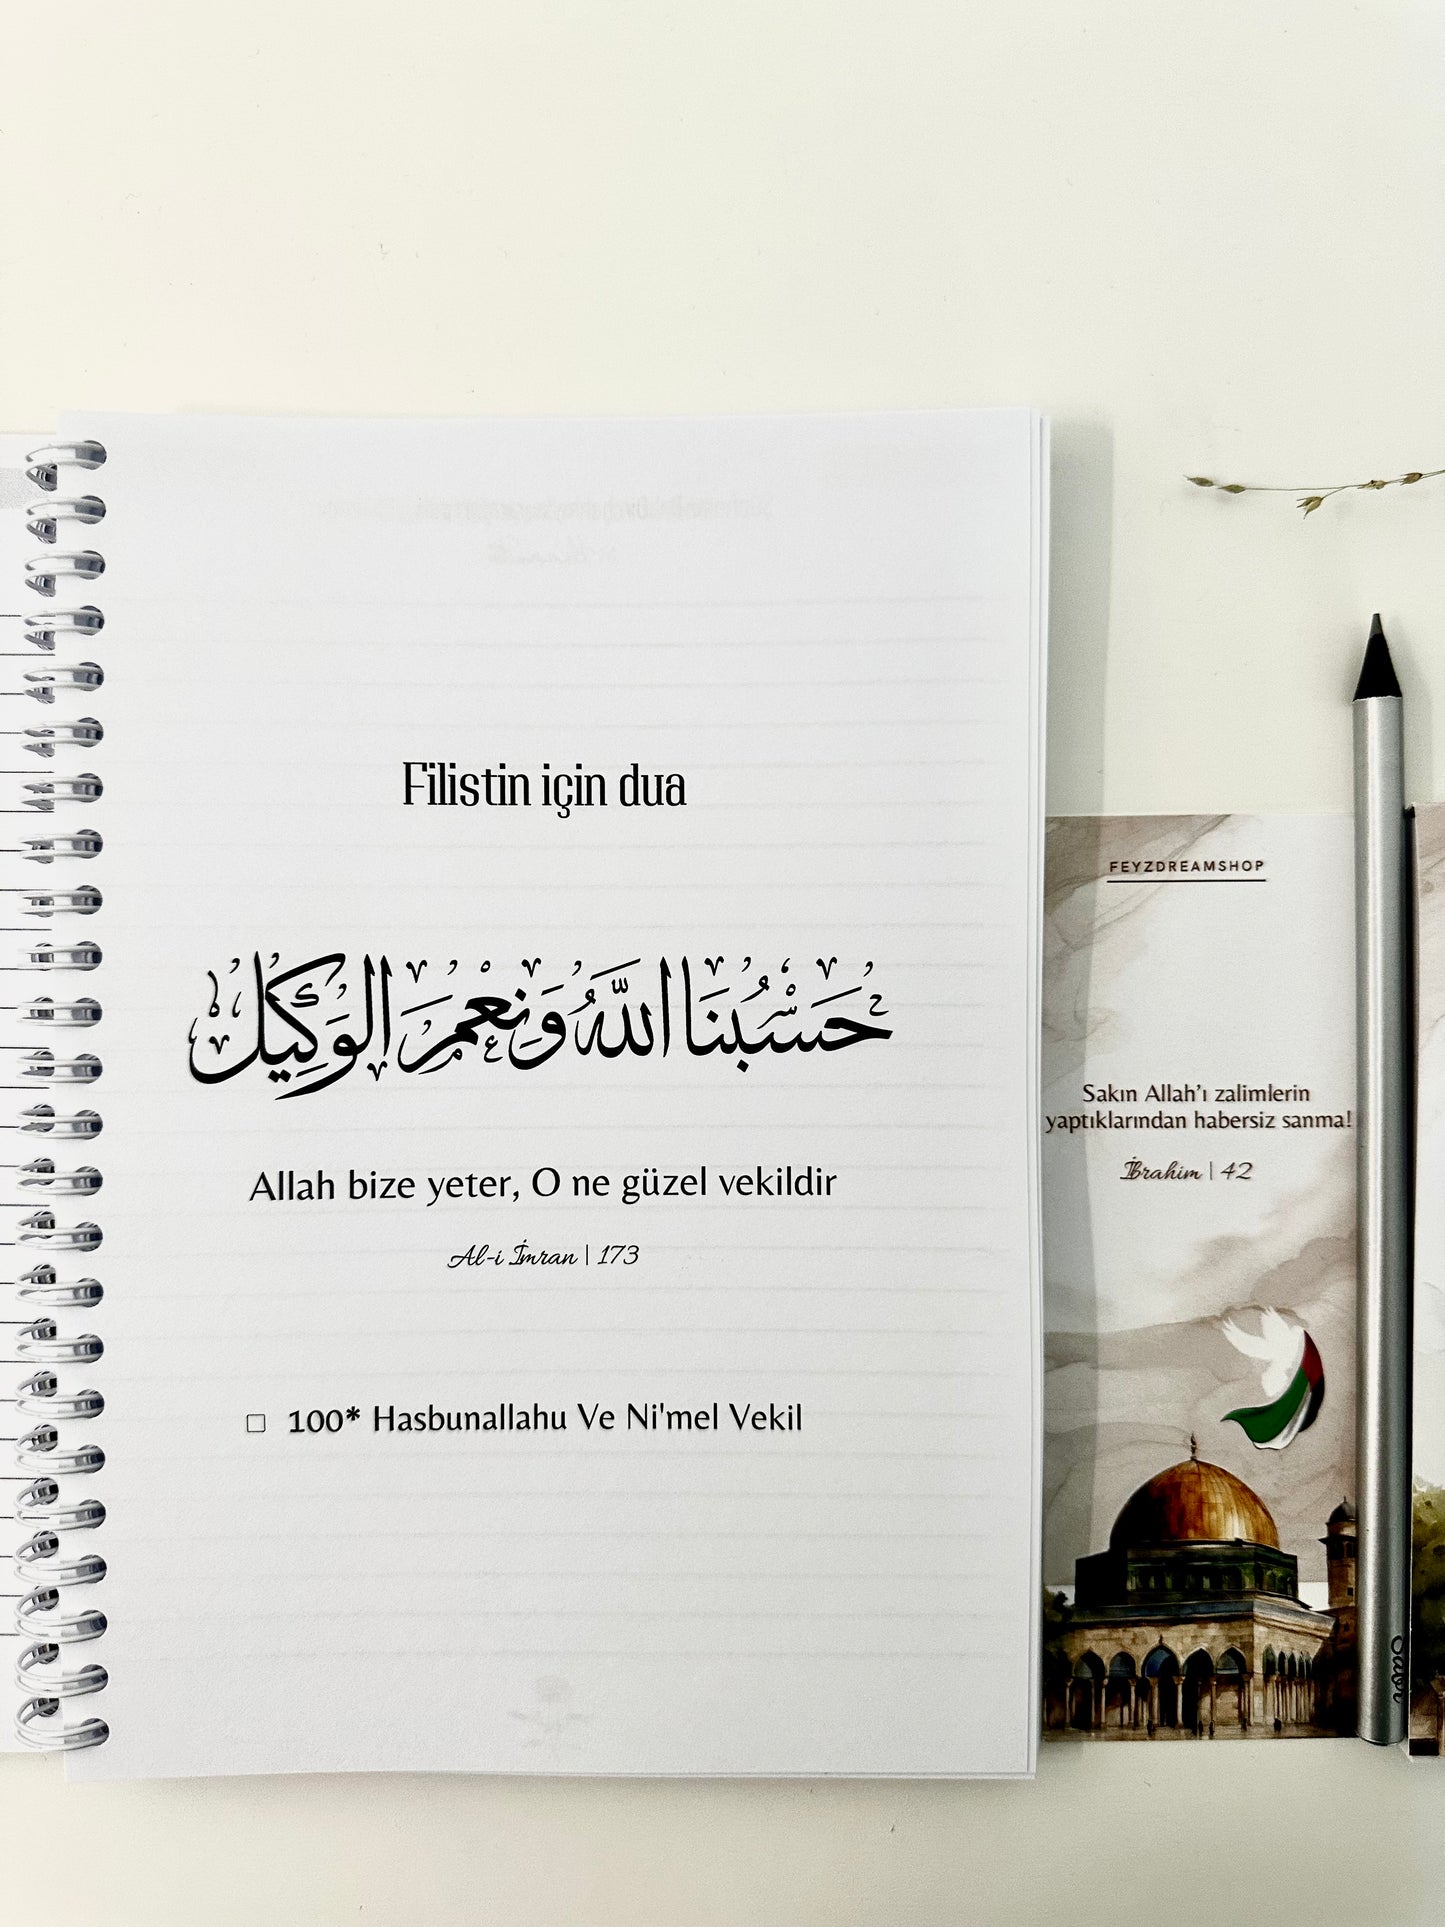 Filistin için dua
حَسْبُنَا اللَّهُ وَنِعْمَ الوَكِيْلُ
Allah bize yeter, O ne güzel vekildir
Al-i İmran | 173
100* Hasbunallahu Ve Ni'mel Vekil
FEYZDREAMSHOP
Sakın Allah’ı zalimlerin
yaptıklarından habersiz sanma!
İbrahim | 42